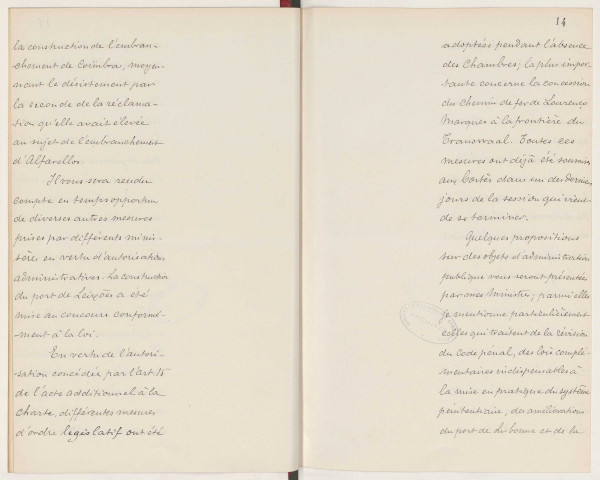 la construction de l'embran-
chement de Coïmbra, moyen-
nant le désistement par
la seconde de la réclama-
tion qu'elle avait élevée
au sujet de l'embranchement
d'Alfarellos.
Il vous sera rendu
compte en temps opportun
de diverses autres mesures
prises par différents minis-
tères en vertu d'autorisation
administratives. La construction
du port de Leixões a été
mise au concours conformé-
-ment à la loi.
En vertu de l'autori-
sation concédée par l'art. 15
de l'acte additionnel à la
Charte, différentes mesures
d'ordre législatif ont été
14
adoptées pendant l'absence
des Chambres; la plus impor-
tante concerne la concession
du chemin de fer de Lourenço
Marques à la frontière du
Transvaal. Toutes ces
mesures ont déjà été soumises
aux Cortès dans un des derniers
jours de la session qui vient
de se terminer.
Quelques propositions
sur des objets d'administration
publique vous seront présentées
par mes Ministres; parmi elles
je mentionne particulièrement
celles qui traitent de la révision
du Code pénal, des lois complé-
mentaires indispensables à
la mise en pratique du système
pénitentiaire, des améliorations
du port de Lisbonne et de la